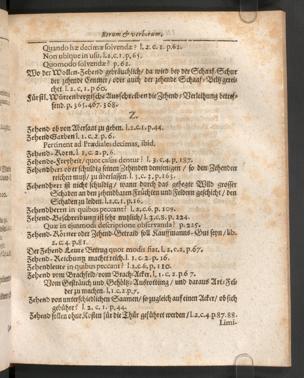 Rerum & verborum.
Quando hæ decimæ solvendæ? l.2.c.1. p.62.
Non ubique in usu, l.1.c.1. p.65.
Quomodo solvendæ? p.62.
Wo der Wollen-Zehend gebräuchlich/ da wird bey der Schaaf-Schur
der zehende Centner/ oder auch der zehende Schaaf-Beltz gerei-
chet. l.2.c.1. p.60.
Fürstl. Würtenbergische Ausschreiben die Zehend-Verleihung betref-
fend. p.365.467.368.
Z.
Zehend ob von Abersaat zu geben. l.2.c.1.p.44.
Zehend Garben l.1.c.2.p.6.
Pertinent ad Prædiales decimas, ibid.
Zehend-Korn. l.1.c.2.p.6.
Zehende-Freyheit/ quot
Zehendherr ob er schuldig seinen Zehenden demjenigen/ so den Zehendter
reichen muß/ zu überlassen.
Zehendherr ist nicht schuldig/ wann durch das gehegte Wild grosser
Schaden an den zehendbaren Früchten und Feldern geschicht/ den
Schaden zu leiden. l.1.c.1. p.16.
Zehendherrn in quibus peccant? l.2.c.6. p.109.
Zehend-Beschreibung ist sehr nutzlich/ l.3.c.8. p.224.
Quæ in ejusmodi descriptione observanda? p.225.
Zehend-Körner oder Zehend-Getraid soll Kauffmanns-Gut seyn/ lib.
2.c.4. p.81.
Der Zehend-Leute Betrug quot modis fiat. l.2.c.2.p.67.
Zehend-Reichung machet reich. l.1.c.2. p.16.
Zehendleute in quibus peccant? l.2.c.6, p.110.
Zehend vom Brachfeld/ vom Brach-Acker, l.1.c.2. p.67
Vom Gesträuch und Gehöltz-Ausrottung/ und daraus Art-Fel-
der zu machen. l.1.c.2.p.7.
Zehend von unterschiedlichen Saamen/ so zugleich auf einen Acker/ ob sich
gebühre? l.2.c.1. p.44.
Zehend sollen ohne Kosten für die Thür geführet werden/ l.2.c.4. p.87.88.
Limi-